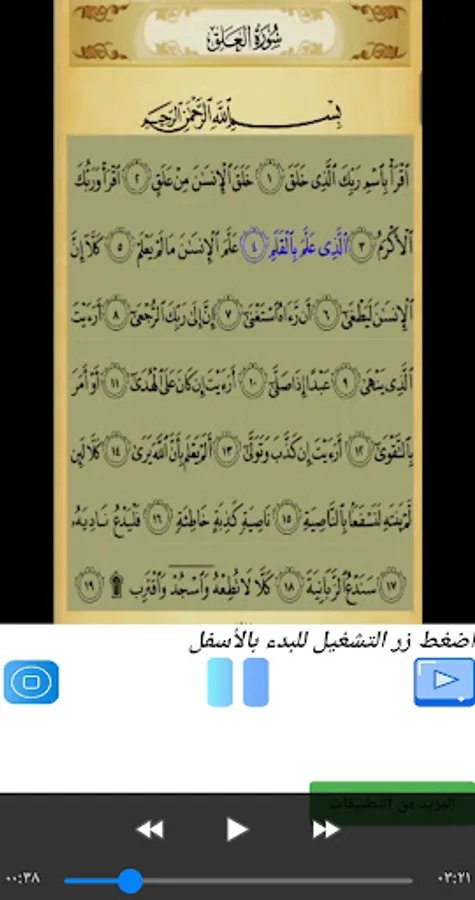 سُورَةُ الْعَلَقِ
بِسْمِ اللَّهِ الرَّحْمَٰنِ الرَّحِيمِ
ٱقْرَأْ بِٱسْمِ رَبِّكَ ٱلَّذِى خَلَقَ ١ خَلَقَ ٱلْإِنسَـٰنَ مِنْ عَلَقٍ ٢ ٱقْرَأْ وَرَبُّكَ
ٱلْأَكْرَمُ ٣ ٱلَّذِى عَلَّمَ بِٱلْقَلَمِ ٤ عَلَّمَ ٱلْإِنسَـٰنَ مَا لَمْ يَعْلَمْ ٥ كَلَّآ إِنَّ
ٱلْإِنسَـٰنَ لَيَطْغَىٰٓ ٦ أَن رَّءَاهُ ٱسْتَغْنَىٰٓ ٧ إِنَّ إِلَىٰ رَبِّكَ ٱلرُّجْعَىٰٓ ٨ أَرَءَيْتَ
ٱلَّذِى يَنْهَىٰ ٩ عَبْدًا إِذَا صَلَّىٰٓ ١٠ أَرَءَيْتَ إِن كَانَ عَلَى ٱلْهُدَىٰٓ ١١ أَوْ أَمَرَ
بِٱلتَّقْوَىٰٓ ١٢ أَرَءَيْتَ إِن كَذَّبَ وَتَوَلَّىٰٓ ١٣ أَلَمْ يَعْلَم بِأَنَّ ٱللَّهَ يَرَىٰ ١٤ كَلَّا لَئِن
لَّمْ يَنتَهِ لَنَسْفَعًۢا بِٱلنَّاصِيَةِ ١٥ نَاصِيَةٍ كَـٰذِبَةٍ خَاطِئَةٍ ١٦ فَلْيَدْعُ نَادِيَهُۥ
١٧ سَنَدْعُ ٱلزَّبَانِيَةَ ١٨ كَلَّا لَا تُطِعْهُ وَٱسْجُدْ وَٱقْتَرِب ۩ ١٩
اضغط زر التشغيل للبدء بالأسفل
المزيد من التطبيقات
٠٠:٣٨
٠٣:٢١